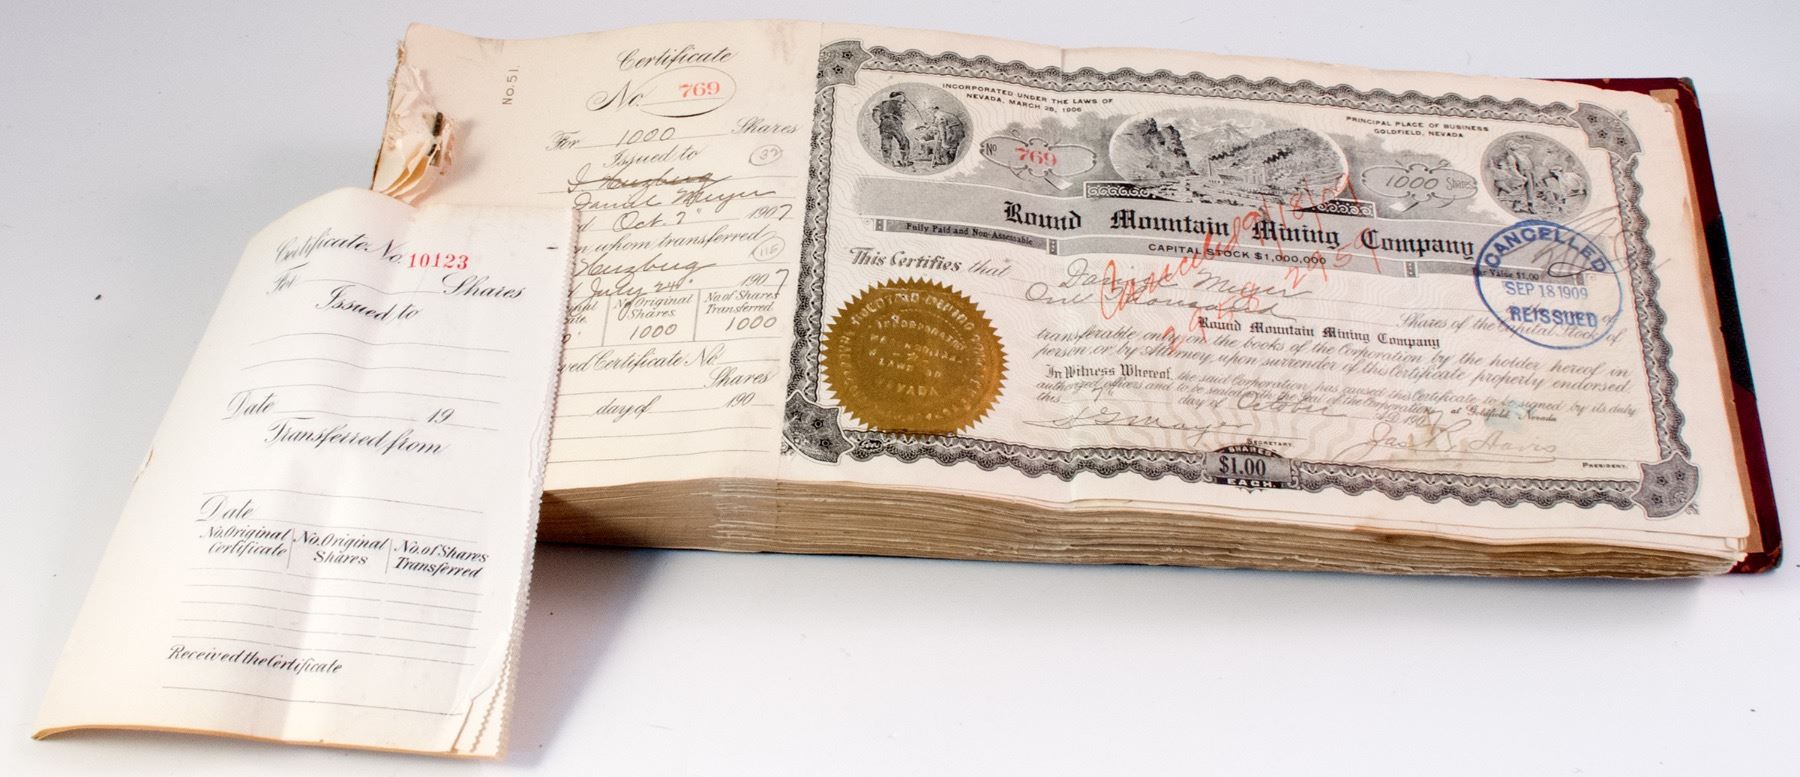 No. 51.
Certificate
No. 769
For 1000 Shares
Issued to
32
Daniel Meyer
Oct. 7" 1907
whom transferred
Herzberg
July 24" 1907
No Original Shares
No of Shares Transferred
1000 1000
Certificate No
Shares
day of 190
Certificate No. 10123
For Shares
Issued to
Date 19
Transferred from
Date
No. Original Certificate
No. Original Shares
No. of Shares Transferred
Received the Certificate
INCORPORATED UNDER THE LAWS OF
NEVADA, MARCH 28, 1906
PRINCIPAL PLACE OF BUSINESS
GOLDFIELD, NEVADA.
No 769
1000 Shares
Round Mountain Mining Company
Fully Paid and Non-Assessable
CAPITAL STOCK $1,000,000
Par Value $1.00
This Certifies that Daniel Meyer
One Thousand
Shares of the Capital Stock of
Round Mountain Mining Company
transferable only on the books of the Corporation by the holder hereof in
person or by Attorney upon surrender of this Certificate properly endorsed.
In Witness Whereof, the said Corporation has caused this Certificate to be signed by its duly
authorized officers and to be sealed with the Seal of the Corporation at Goldfield, Nevada
this 7" day of October 1907
SECRETARY.
PRESIDENT.
SHARES
$1.00
EACH
CANCELLED
SEP 18 1909
REISSUED
Cancelled
NEVADA